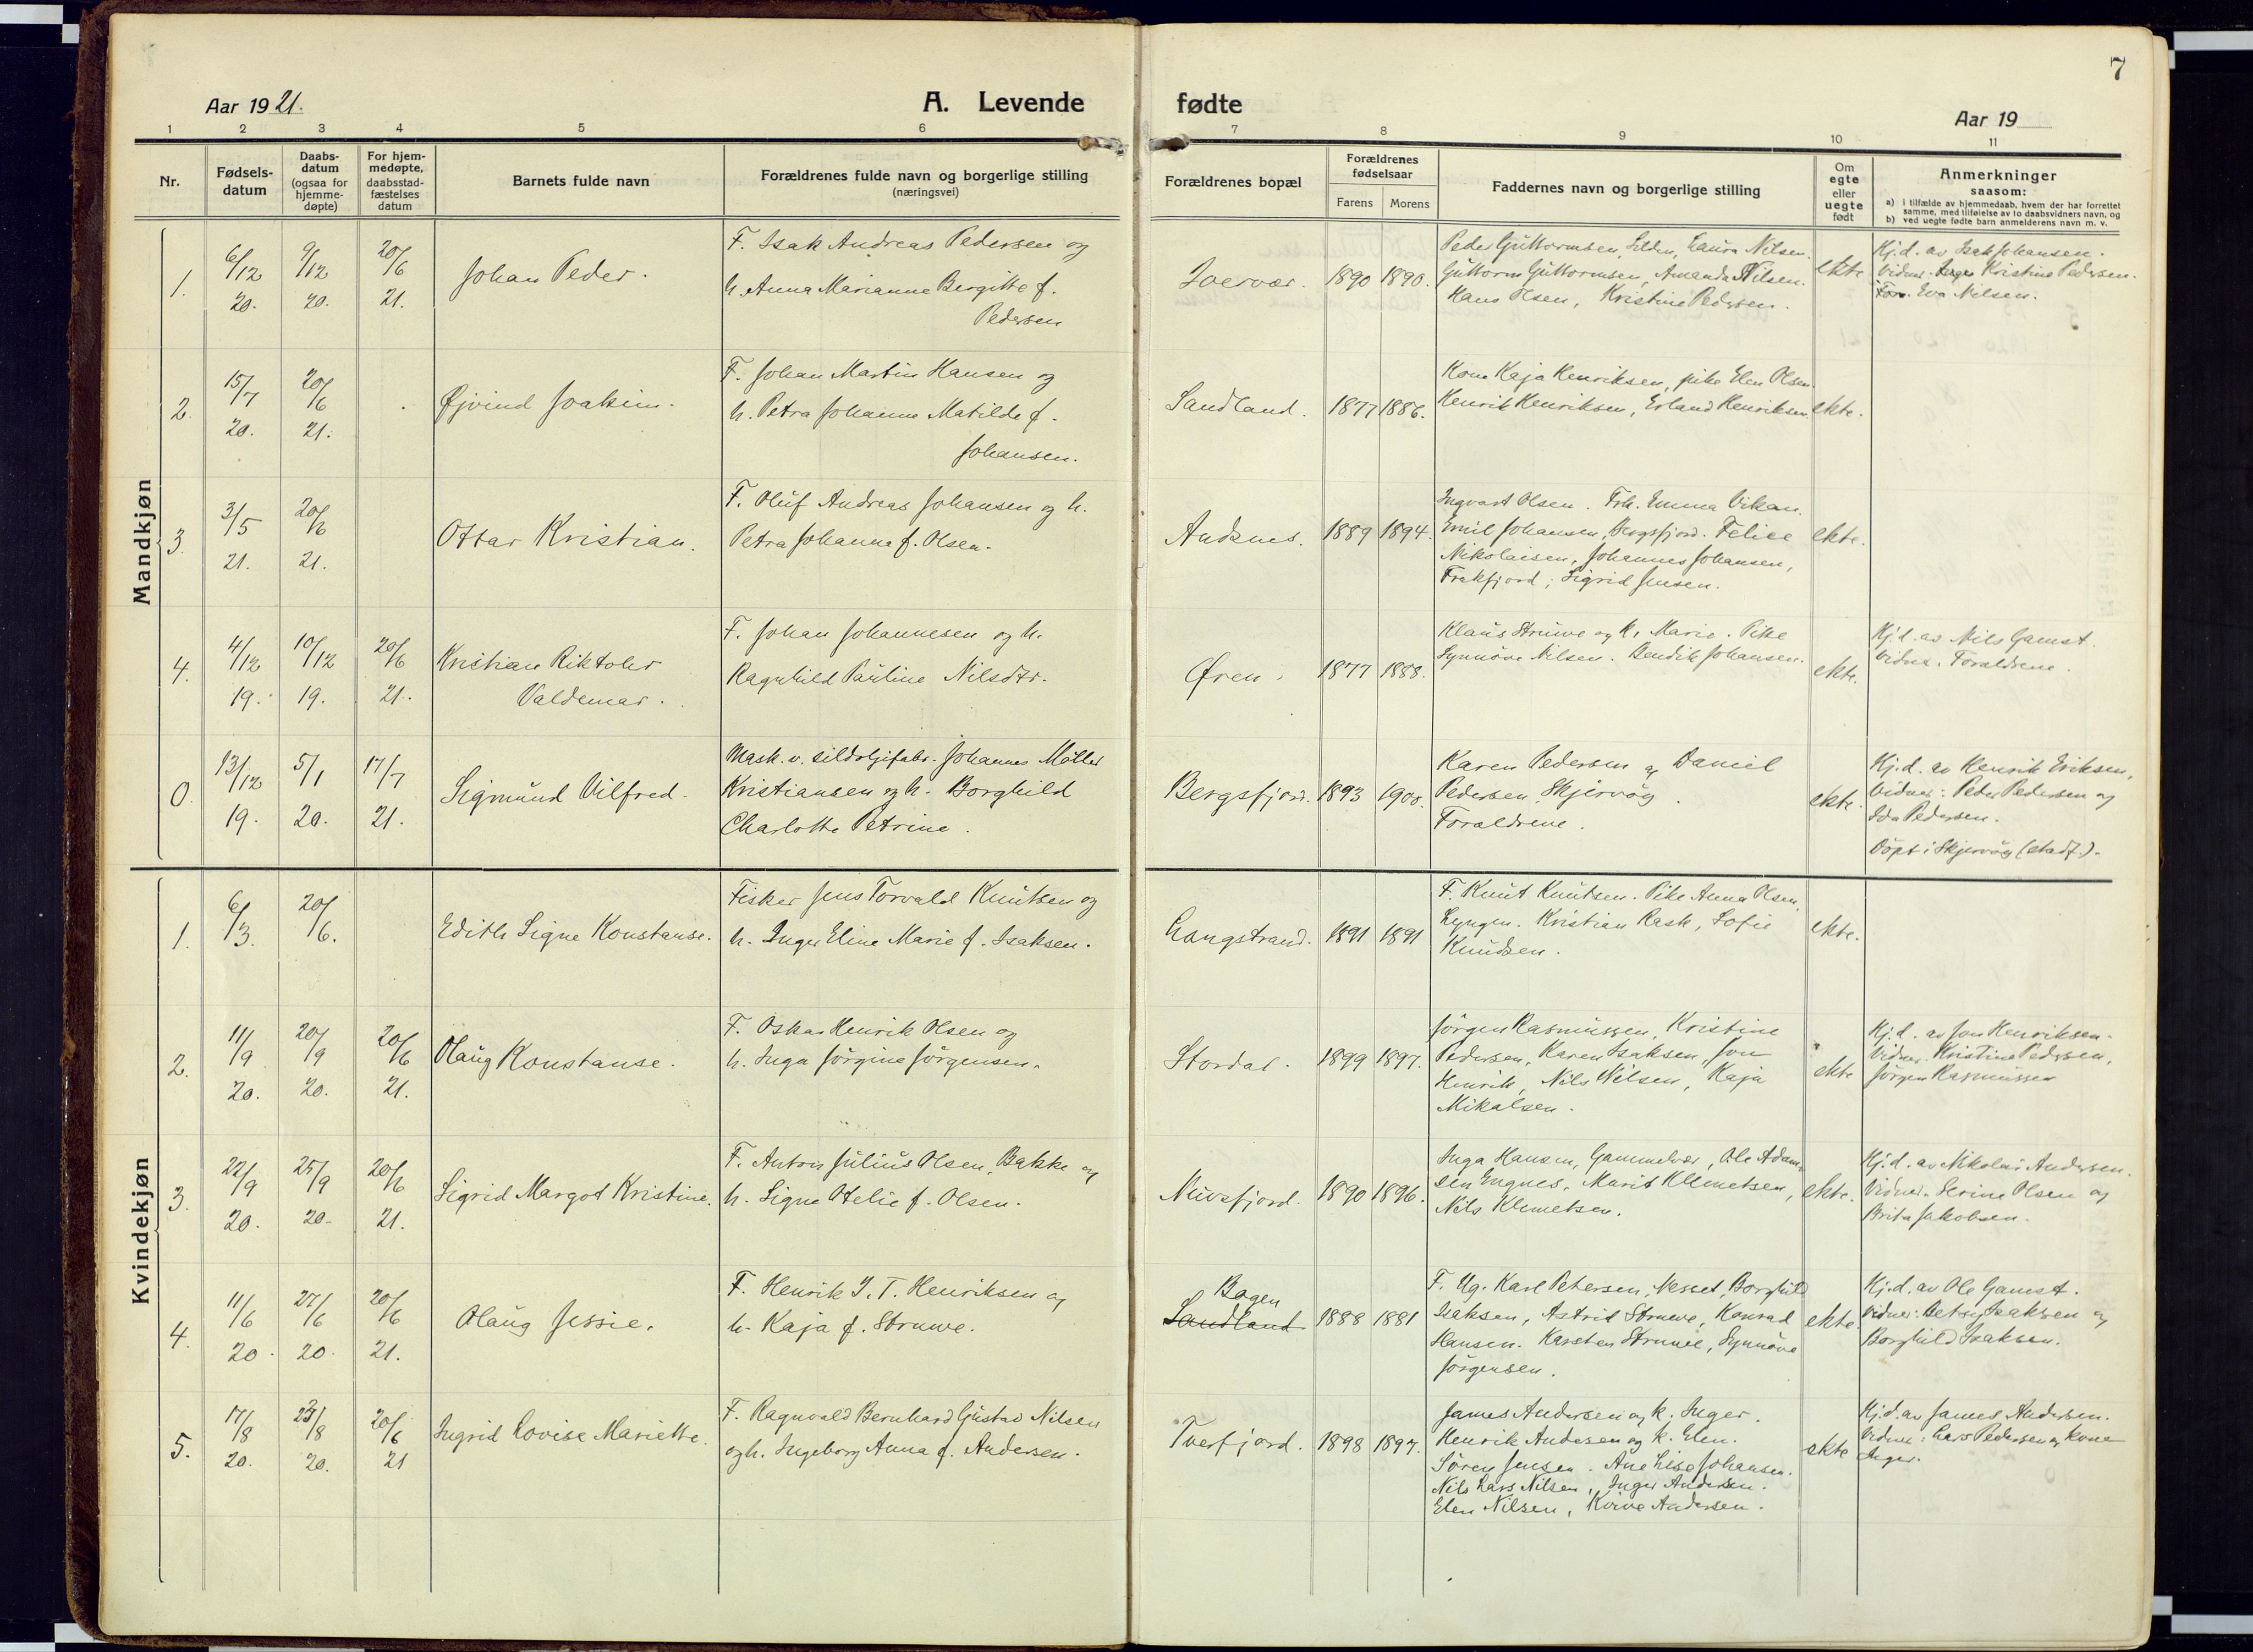 7
Aar 1921.
A. Levende fødte
Aar 19
1 2 3 4 5 6 7 8 9 10 11
Nr.
Fødsels-datum
Daabs-datum (ogsaa for hjemme-døpte)
For hjem-medøpte, daabsstad-fæstelses datum
Barnets fulde navn
Forældrenes fulde navn og borgerlige stilling
(næringsvei)
Forældrenes bopæl
Forældrenes fødselsaar
Farens Morens
Faddernes navn og borgerlige stilling
Om egte eller uegte født
Anmerkninger
saasom:
a) i tilfælde av hjemmedaab, hvem der har forrettet samme, med tilføielse av to daabsvidners navn, og
b) ved uegte fødte barn anmelderens navn m. v.
Mandkjøn
1. 6/12 20. 9/12 20. 20/6 21.
Johan Peder.
F. Isak Andreas Pedersen og
h. Anna Marianne Bergitte f.
Pedersen
Loervær. 1890 1890.
Peder Guttormsen, Laura Nilsen.
Guttorm Guttormsen, Amanda Nilsen.
Hans Olsen, Kristine Pedersen.
ekte
Hj.d. av Isak Johansen.
Vidner: Kristine Pedersen.
Eva Nilsen.
2. 15/7 20. 20/6 21.
Øjvind Joakim.
F. Johan Martin Hansen og
h. Petra Johanna Matilde f.
Johansen.
Sandland. 1877 1886.
Kone Kaja Henriksen, pike Elen Olsen.
Henrik Henriksen, Erland Henriksen
ekte.
3. 3/5 21. 20/6 21.
Ottar Kristian.
F. Oluf Andreas Johansen og h.
Petra Johanna f. Olsen.
Andsnes. 1889 1894.
Ingvart Olsen. Frk. Emma Vikan.
Emil Johansen, Bergsfjord. Felice
Nikolaisen, Johannes Johansen,
Frakfjord; Sigrid Jensen.
ekte.
4. 4/12 19. 10/12 19. 20/6 21.
Kristian Riktoler
Valdemar.
F. Johan Johannesen og h.
Ragnhild Pauline Nilsdtr.
Øren. 1877 1888.
Klaus Struwe og k. Marie. Pike
Synnøve Nilsen. Bendik Johansen.
ekte.
Hj.d. av Nils Gamst.
Vidner: Forældrene.
0. 13/12 19. 5/1 20. 17/7 21.
Sigmund Vilfred.
Mask. v. sildoljefabr. Johannes Möller
Kristiansen og h. Borghild
Charlotte Petrine.
Bergsfjord. 1893 1900.
Karen Pedersen og Daniel
Pedersen, Skjervøy.
Forældrene.
ekte.
Hj.d. av Henrik Eriksen,
Vidner: Peder Pedersen og
Ida Pedersen.
Døpt i Skjervøy (stadf.).
Kvindekjøn
1. 6/3. 20/6.
Edith Signe Konstanse.
Fisker Jens Torvald Knutsen og
h. Inger Eline Marie f. Isaksen.
Langstrand. 1891 1891
F. Knut Knutsen. Pike Anna Olsen,
Lyngen. Kristian Rask, Sofie
Knudsen.
ekte.
2. 11/9 20. 20/9 20. 20/6 21.
Olaug Konstanse.
F. Oskar Henrik Olsen og
h. Inga Jörgine Jörgensen.
Stordal. 1899 1897.
Jörgen Rasmussen, Kristine
Pedersen, Karen Isaksen, Jon
Henrik, Nils Nilsen, Kaja
Mikalsen.
ekte
Hj.d. av Jon Henriksen.
Vidner. Kristine Pedersen,
Jörgen Rasmussen
3. 22/9 20. 25/9 20. 20/6 21.
Sigrid Margot Kristine.
F. Anton Julius Olsen, Bakke og
h. Signe Otelie f. Olsen.
Nuvsfjord. 1890 1896.
Inga Hansen, Gammelvær, Ole Adam-
sen Engnes, Marit Klemetsen,
Nils Klemetsen.
ekte.
Hj.d. av Nikolai Andersen.
Vidner. Serine Olsen og
Brita Jakobsen.
4. 11/6 20. 27/6 20. 20/6 21.
Olaug Jessie.
F. Henrik I. T. Henriksen og
h. Kaja f. Struwe.
Bogen
Sandland 1888 1881
F. Ug. Karl Petersen, Nesset, Borghild
Isaksen, Astrid Struwe, Konrad
Hansen. Karsten Struwe, Synnøve
Jörgensen.
ekte.
Hj.d. av Ole Gamst.
Vidner: Betsy Isaksen og
Borghild Isaksen.
5. 17/8 20. 23/8 20. 20/6 21
Ingrid Lovise Mariette.
F. Ragnvald Bernhard Gustav Nilsen
og h. Ingeborg Anna f. Andersen.
Tverfjord. 1898 1897.
James Andersen og k. Inger.
Henrik Andesen og k. Elen.
Sören Jensen. Ane Lise Johansen.
Nils Lars Nilsen, Inger Andersen.
Elen Nilsen, Andersen.
ekte
Hj.d. av James Andersen.
Vidner: Lars Pedersen og kone
Inger.